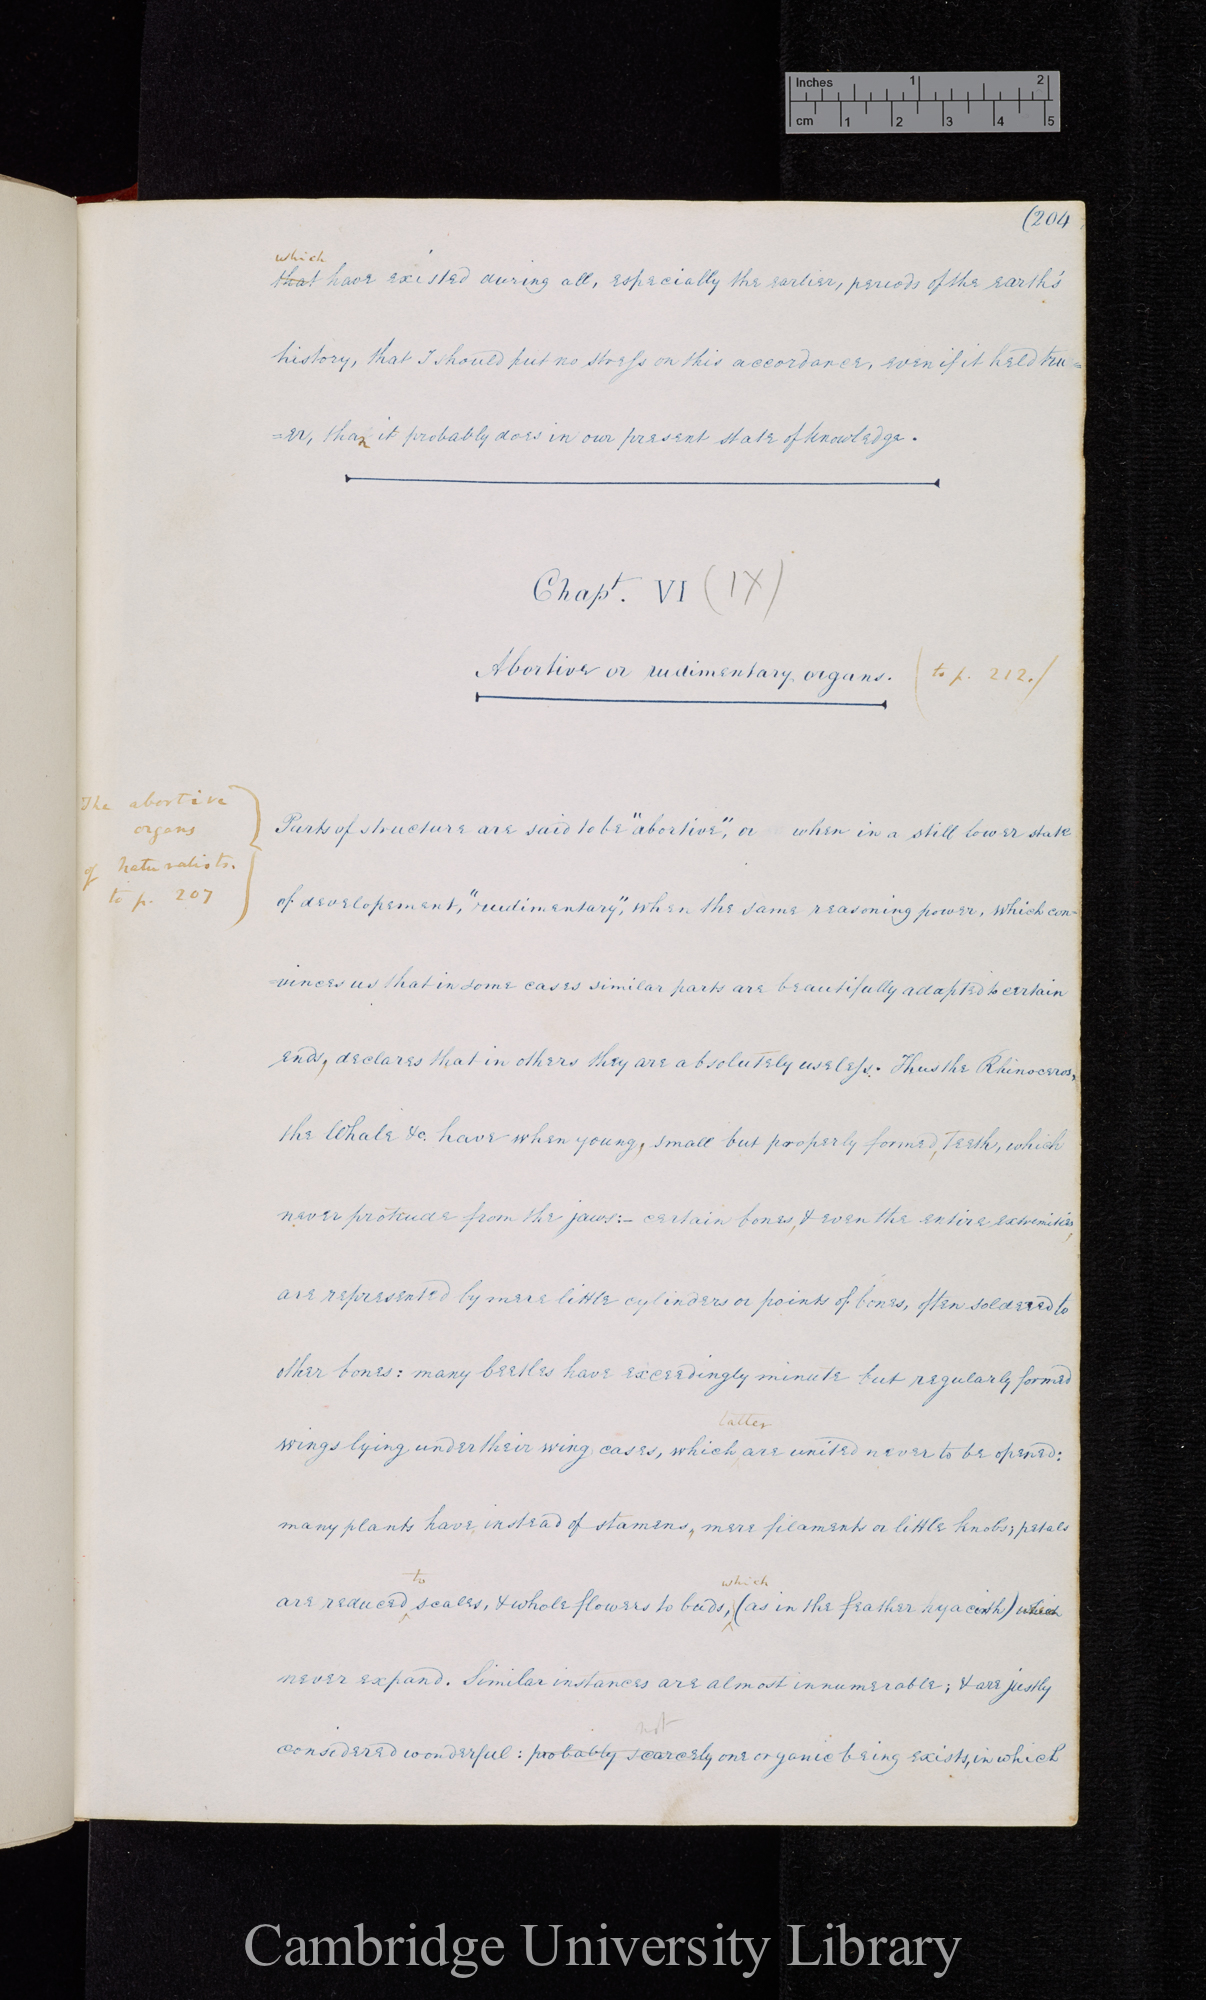 Inches 1 2
cm 1 2 3 4 5
(204
which
that have existed during all, especially the earlier, periods of the earth's
history, that I should put no stress on this accordance, even if it held tru=
=er, than it probably does in our present state of knowledge.
Chapt. VI (IX)
Abortive or rudimentary organs. (to p. 212.)
The abortive
organs
of naturalists.
to p. 207
Parts of structure are said to be "abortive", or when in a still lower state
of developement, "rudimentary", when the same reasoning power, which con-
vinces us that in some cases similar parts are beautifully adapted to certain
ends, declares that in others they are absolutely useless. Thus the Rhinoceros,
the Whale &c. have when young, small but properly formed, teeth, which
never protrude from the jaws:– certain bones, & even the entire extremities,
are represented by mere little cylinders or points of bones, often soldered to
other bones: many beetles have exceedingly minute but regularly formed
latter
wings lying under their wing cases, which are united never to be opened:
many plants have, instead of stamens, mere filaments or little knobs; petals
to which
are reduced scales, & whole flowers to buds, (as in the feather hyacinth) which
never expand. Similar instances are almost innumerable; & are justly
not
considered wonderful: probably scarcely one organic being exists, in which
Cambridge University Library